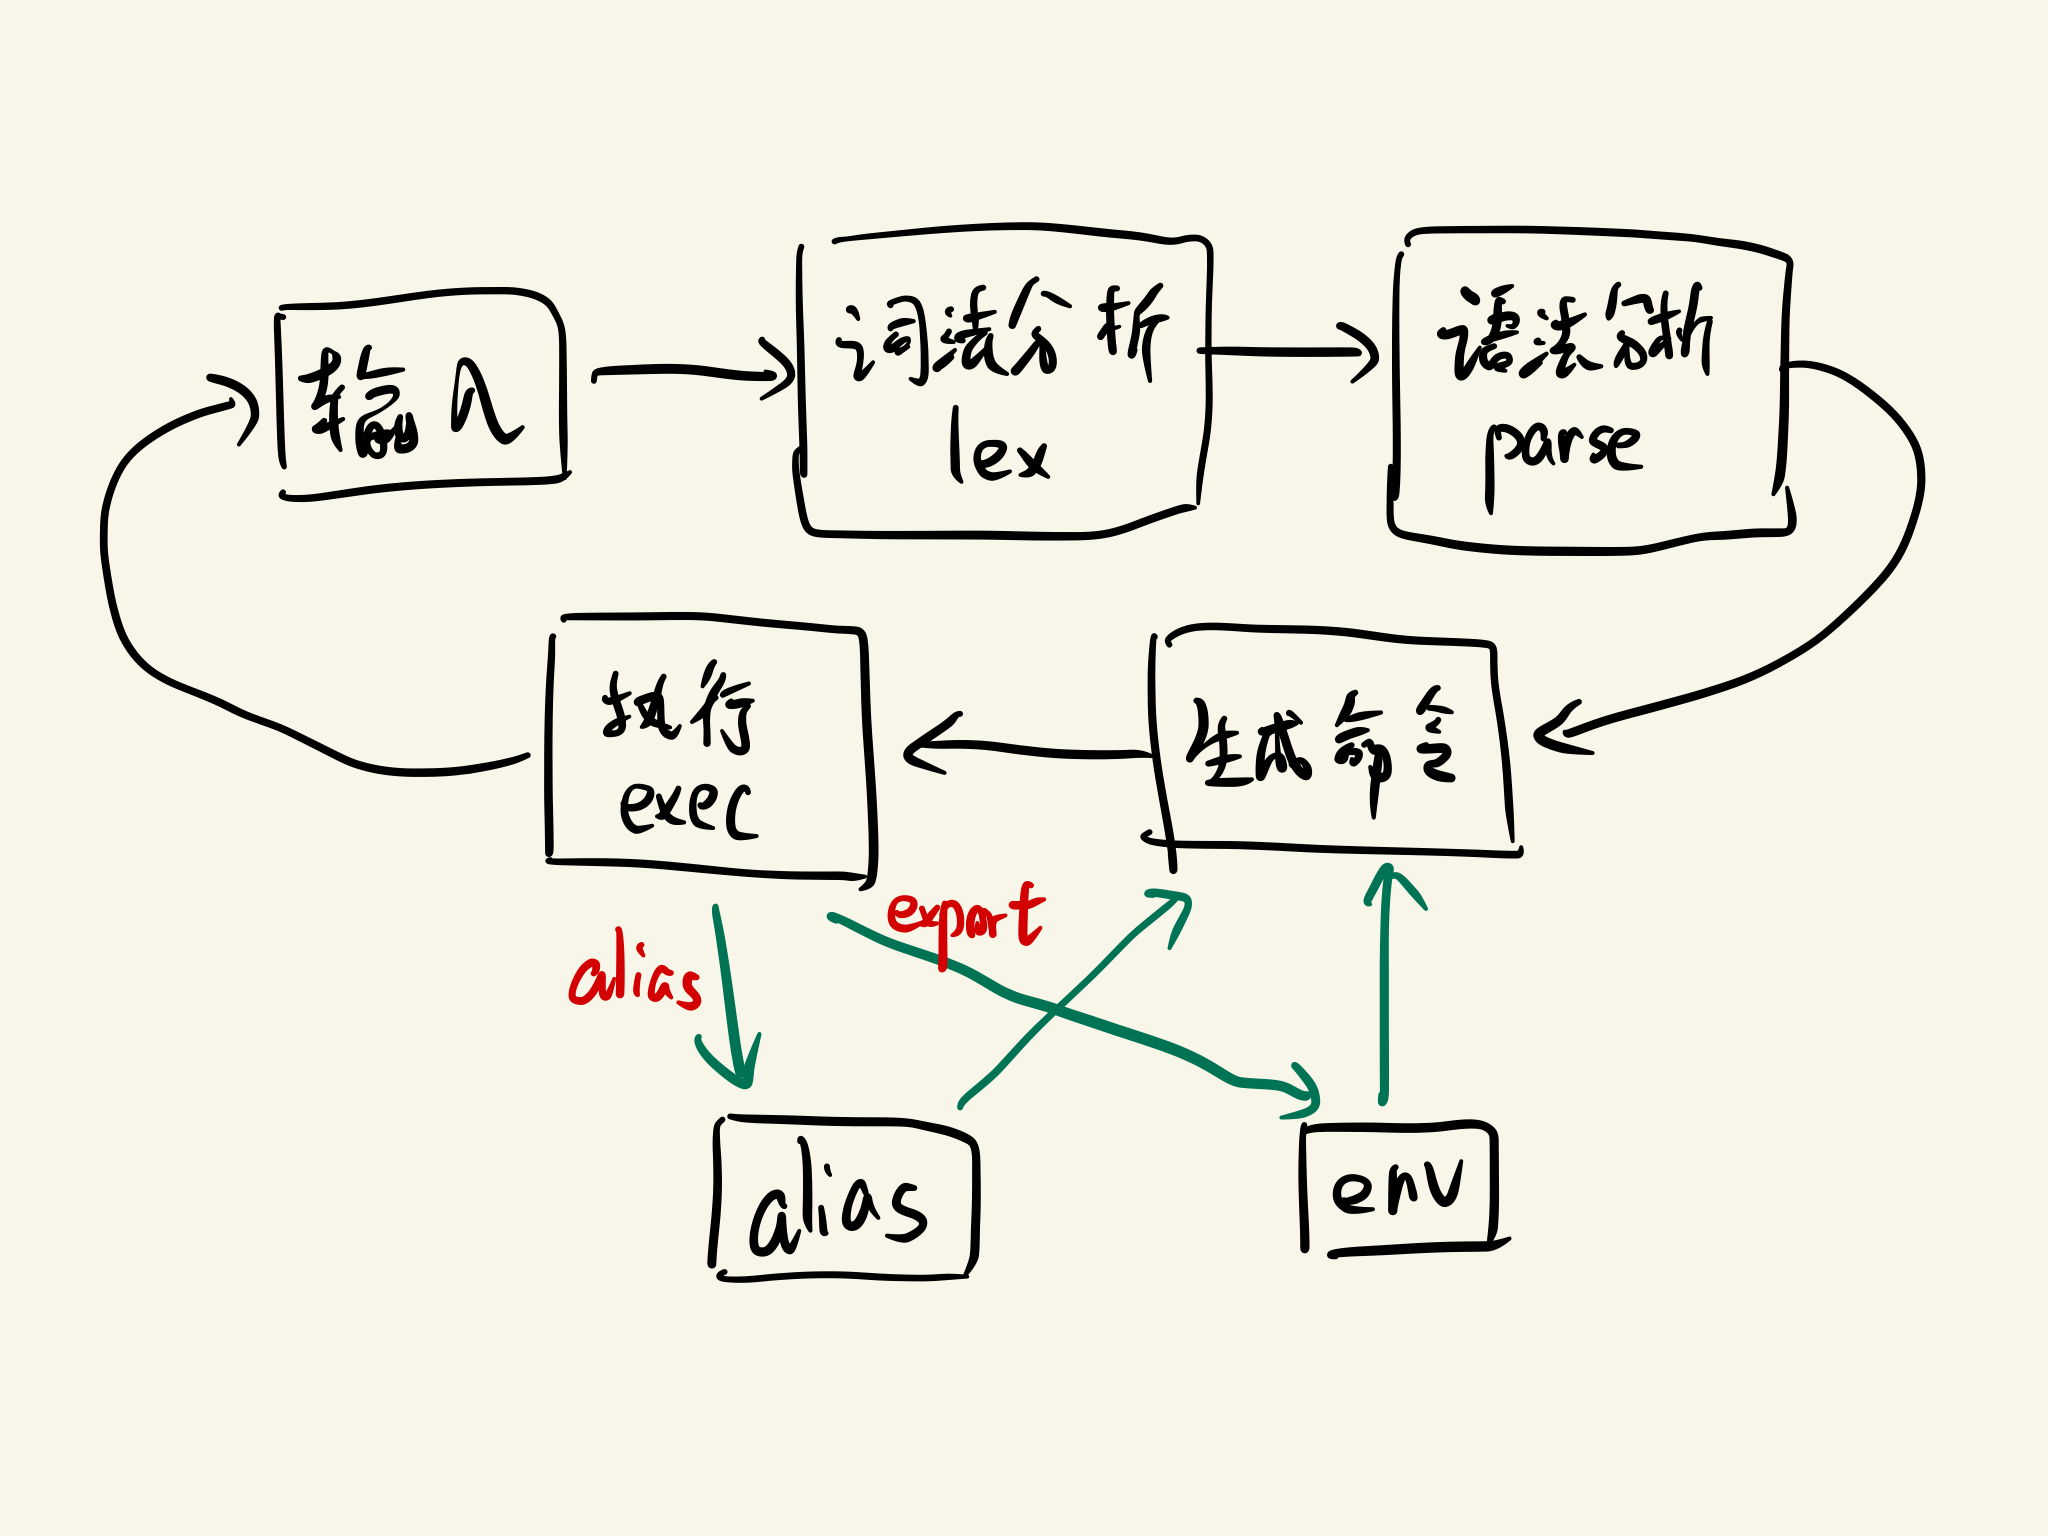 输入
词法分析
lex
语法分析
parse
执行
exec
生成命令
alias
export
alias
env